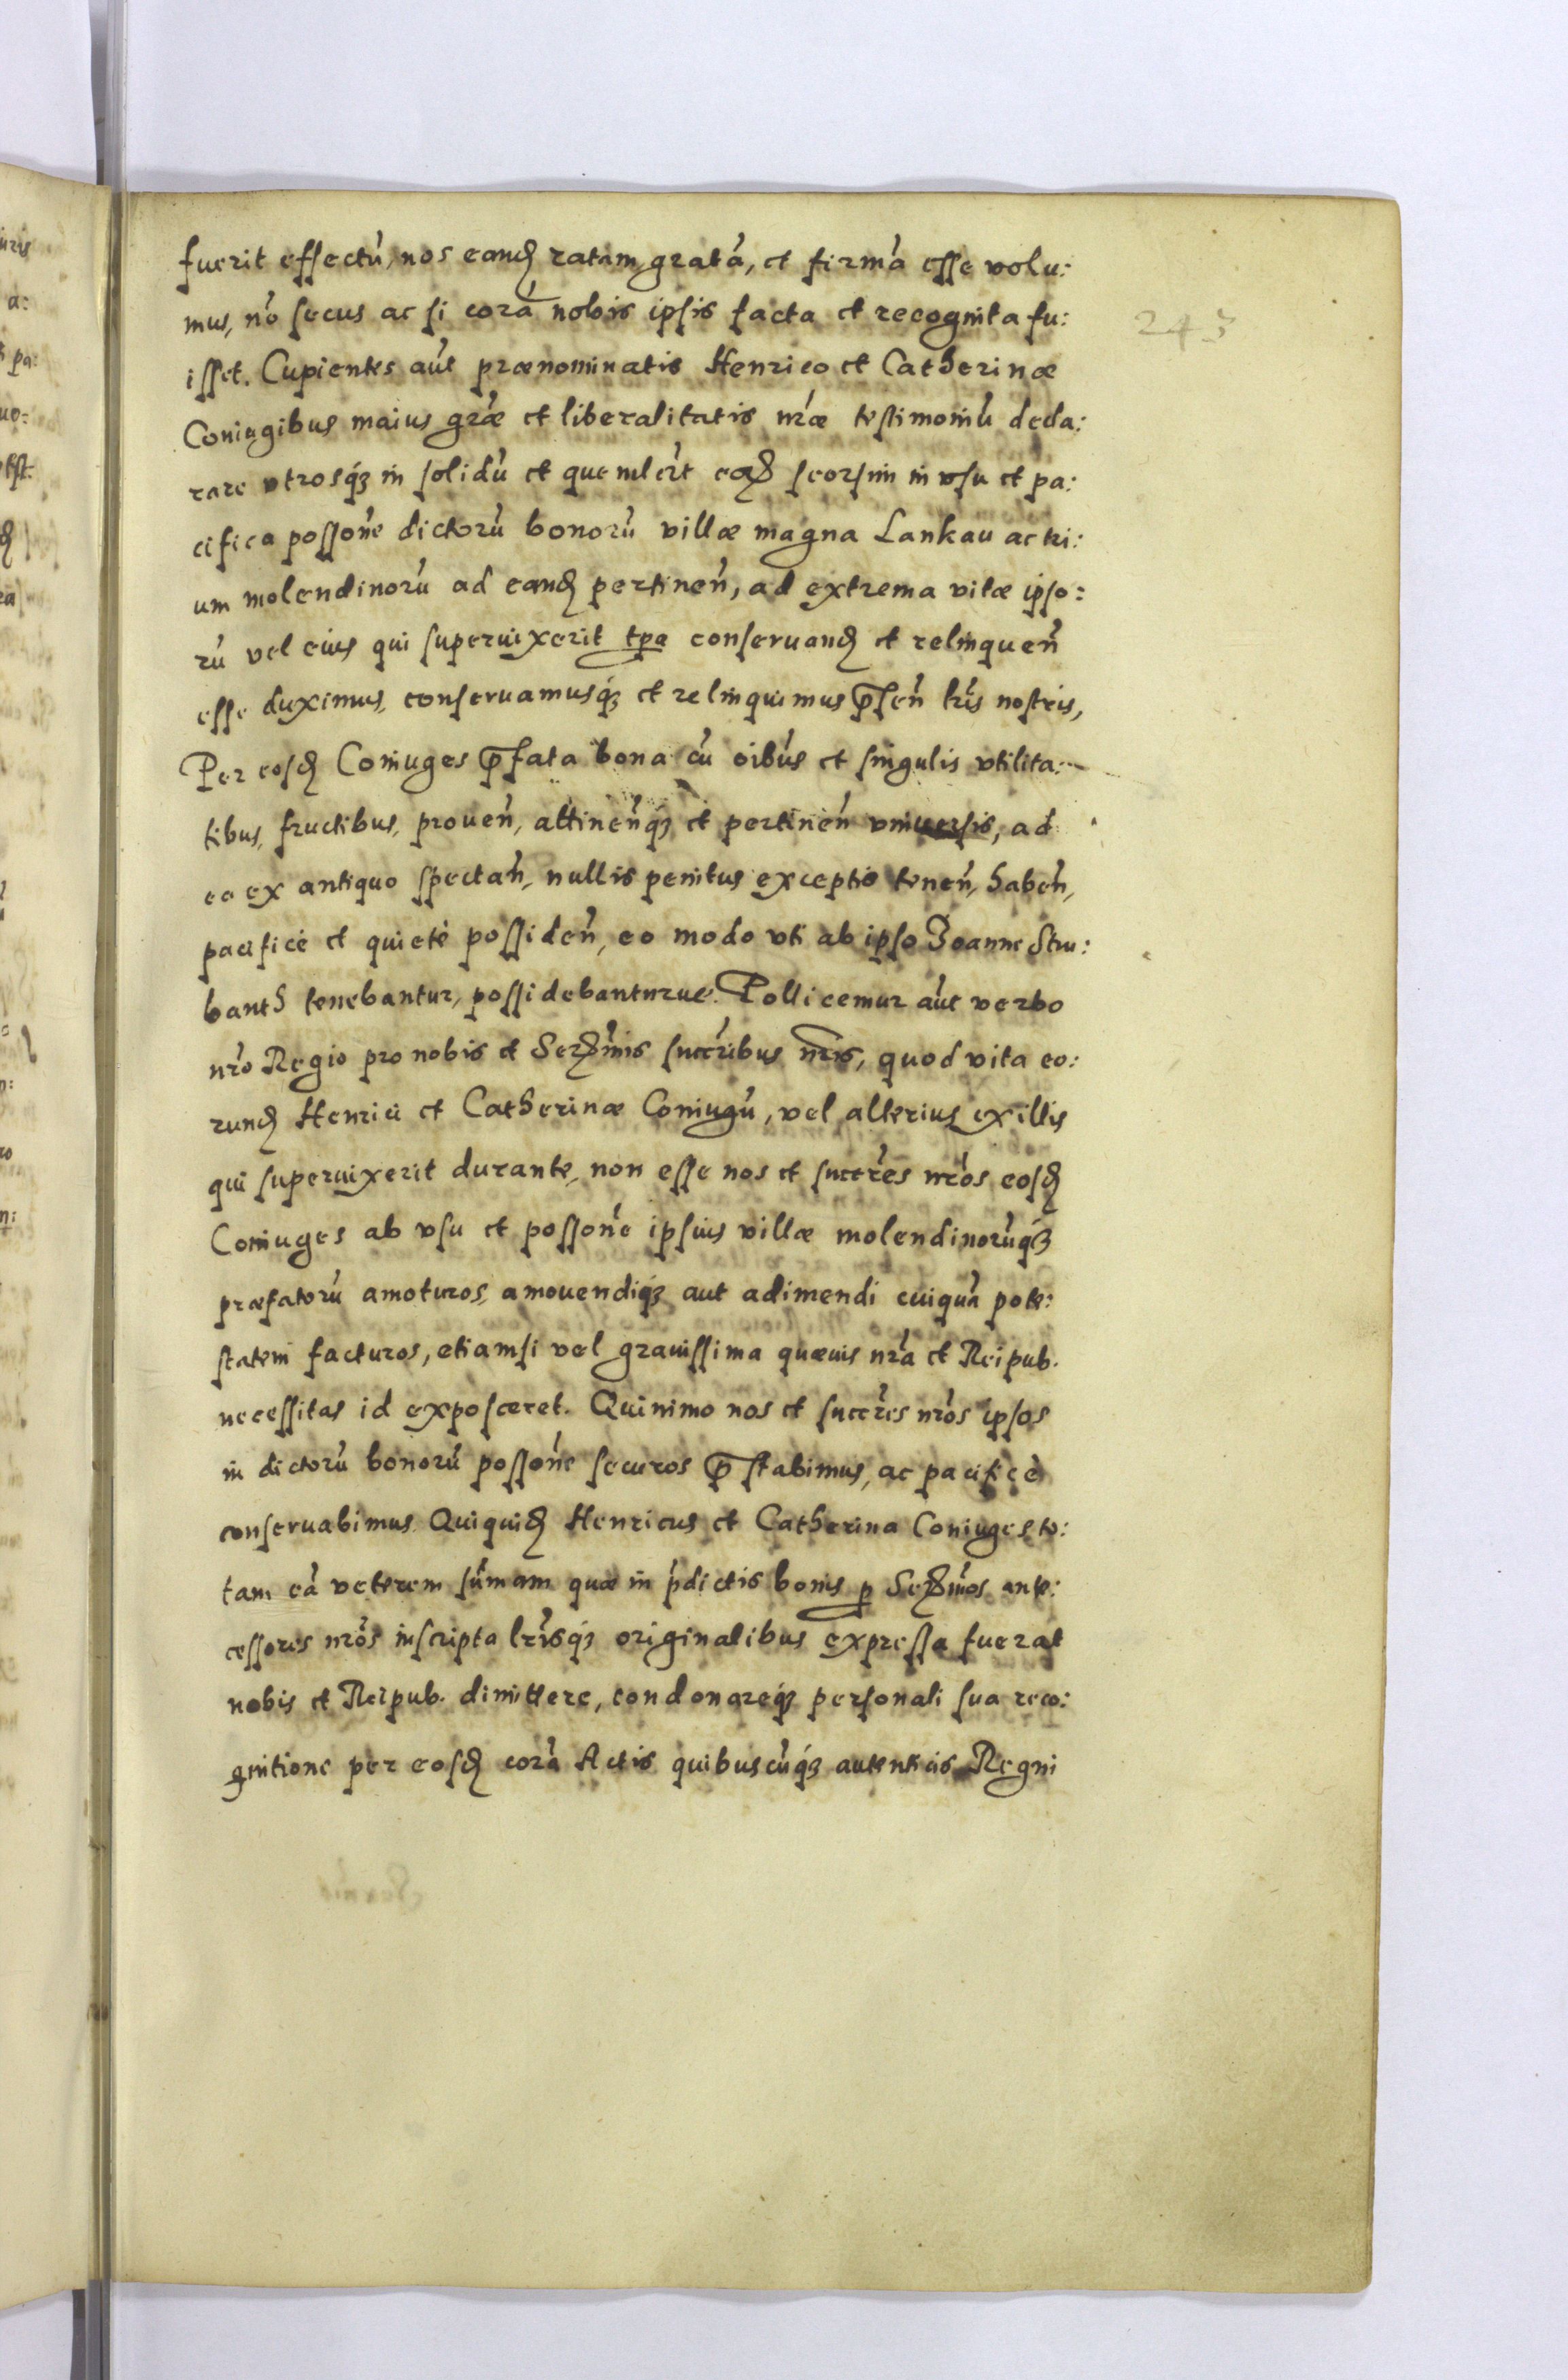 fuerit effectũ, nos eandẽ ratam, gratã, et firmã esse volu:
mus, nõ secus ac si corã nobis ipsis facta et recognita fu:
243
isset. Cupientes aũt prænominatis Henrico et Catherinæ
Coniugibus maius grãæ et liberalitatis nrãæ testimoniũ decla:
rare vtrosq₃ in solidũ et quemlibet eoꝝ seorsim in vsu et pa:
cifica possõne dictorũ bonorũ villæ magna Lankau ac tri:
um molendinorũ ad eandẽ pertineñ, ad extrema vitæ ipso:
rũ vel eius qui superuixerit tpa conseruandẽ et relinqueñ
esse duximus, conseruamusq₃ et relinquimus p̃señ lris nostris,
Per eosdẽ Coniuges p̃fata bona cũ oibus et singulis vtilita:
tibus, fructibus, proueñ, attineñq₃ et pertineñ vniuersis, ad
ea ex antiquo spectañ, nullis penitus exceptis teneñ, habeñ,
pacificè et quietè possideñ, eo modo vti ab ipso Joanne Stru:
banth tenebantur, possidebanturue. Pollicemur aũt verbo
nrõ Regio pro nobis et Serꝫmis succribus nris, quod vita eo:
rundẽ Henrici et Catherinæ Coniugũ, vel alterius ex illis
qui superuixerit durante, non esse nos et succres nrõs eosdẽ
Coniuges ab vsu et possõne ipsius villæ molendinorũq₃
præfatorũ amoturos, amouendiq₃ aut adimendi cuiquã pote:
statem facturos, etiamsi vel grauissima quæuis nrã et Reipub.
necessitas id exposceret. Quinimo nos et succres nrõs ipsos
in dictorũ bonorũ possõne securos p̃stabimus, ac pacificè
conseruabimus. Quiquidẽ Henricus et Catherina Coniuges to:
tam eã veterem sũmam quæ in p̃dictis bonis ꝑ Serꝫmos ante:
cessores nrõs inscripta lrisq₃ originalibus expressa fuerat
nobis et Reipub. dimittere, condonareq₃ personali sua reco:
gnitione per eosdẽ corã Actis quibuscũq₃ autenticis Regni